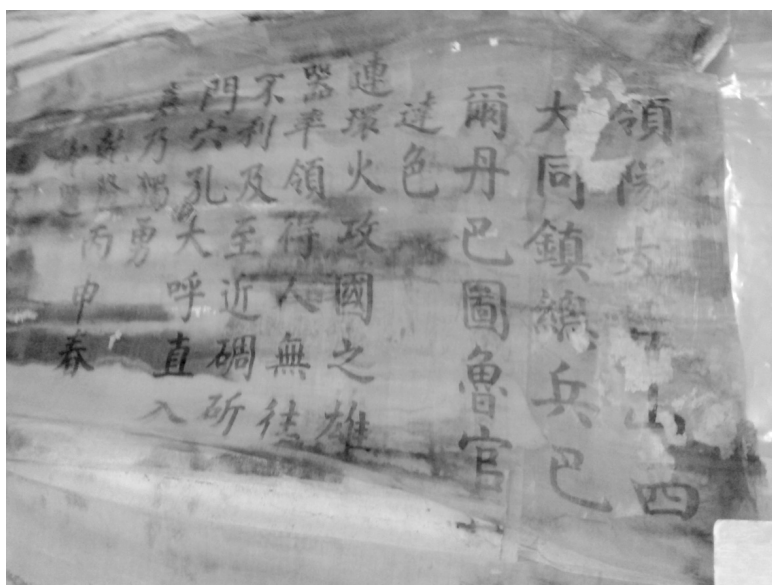 領隊大臣山西
大同鎮總兵巴
爾丹巴圖魯官
達色
連環火攻國之雄
器率領得人無徃
不利及至近碉斫
門穴孔大呼直入
真乃獨勇
乾隆丙申春